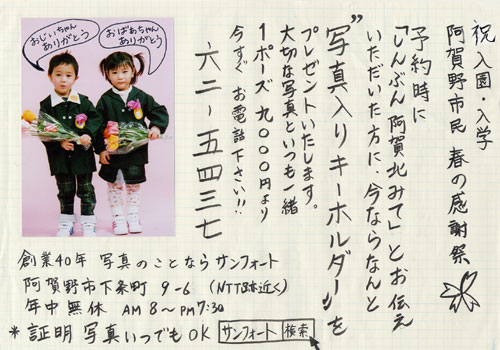 祝 入園・入学
阿賀野市民 春の感謝祭
予約時に
「しんぶん阿賀北みて」とお伝え
いただいた方に、今ならなんと
"写真入りキーホルダー"を
プレゼントいたします。
大切な写真といつも一緒
1ポーズ 九〇〇〇円より
今すぐ お電話下さい!!
六二-五四三七
おじいちゃん
ありがとう
おばあちゃん
ありがとう
創業40年 写真のことなら サンフォート
阿賀野市下条町 9-6 (NTT日本近く)
年中無休 AM8~PM7:30
*証明写真いつでもOK サンフォート 検索